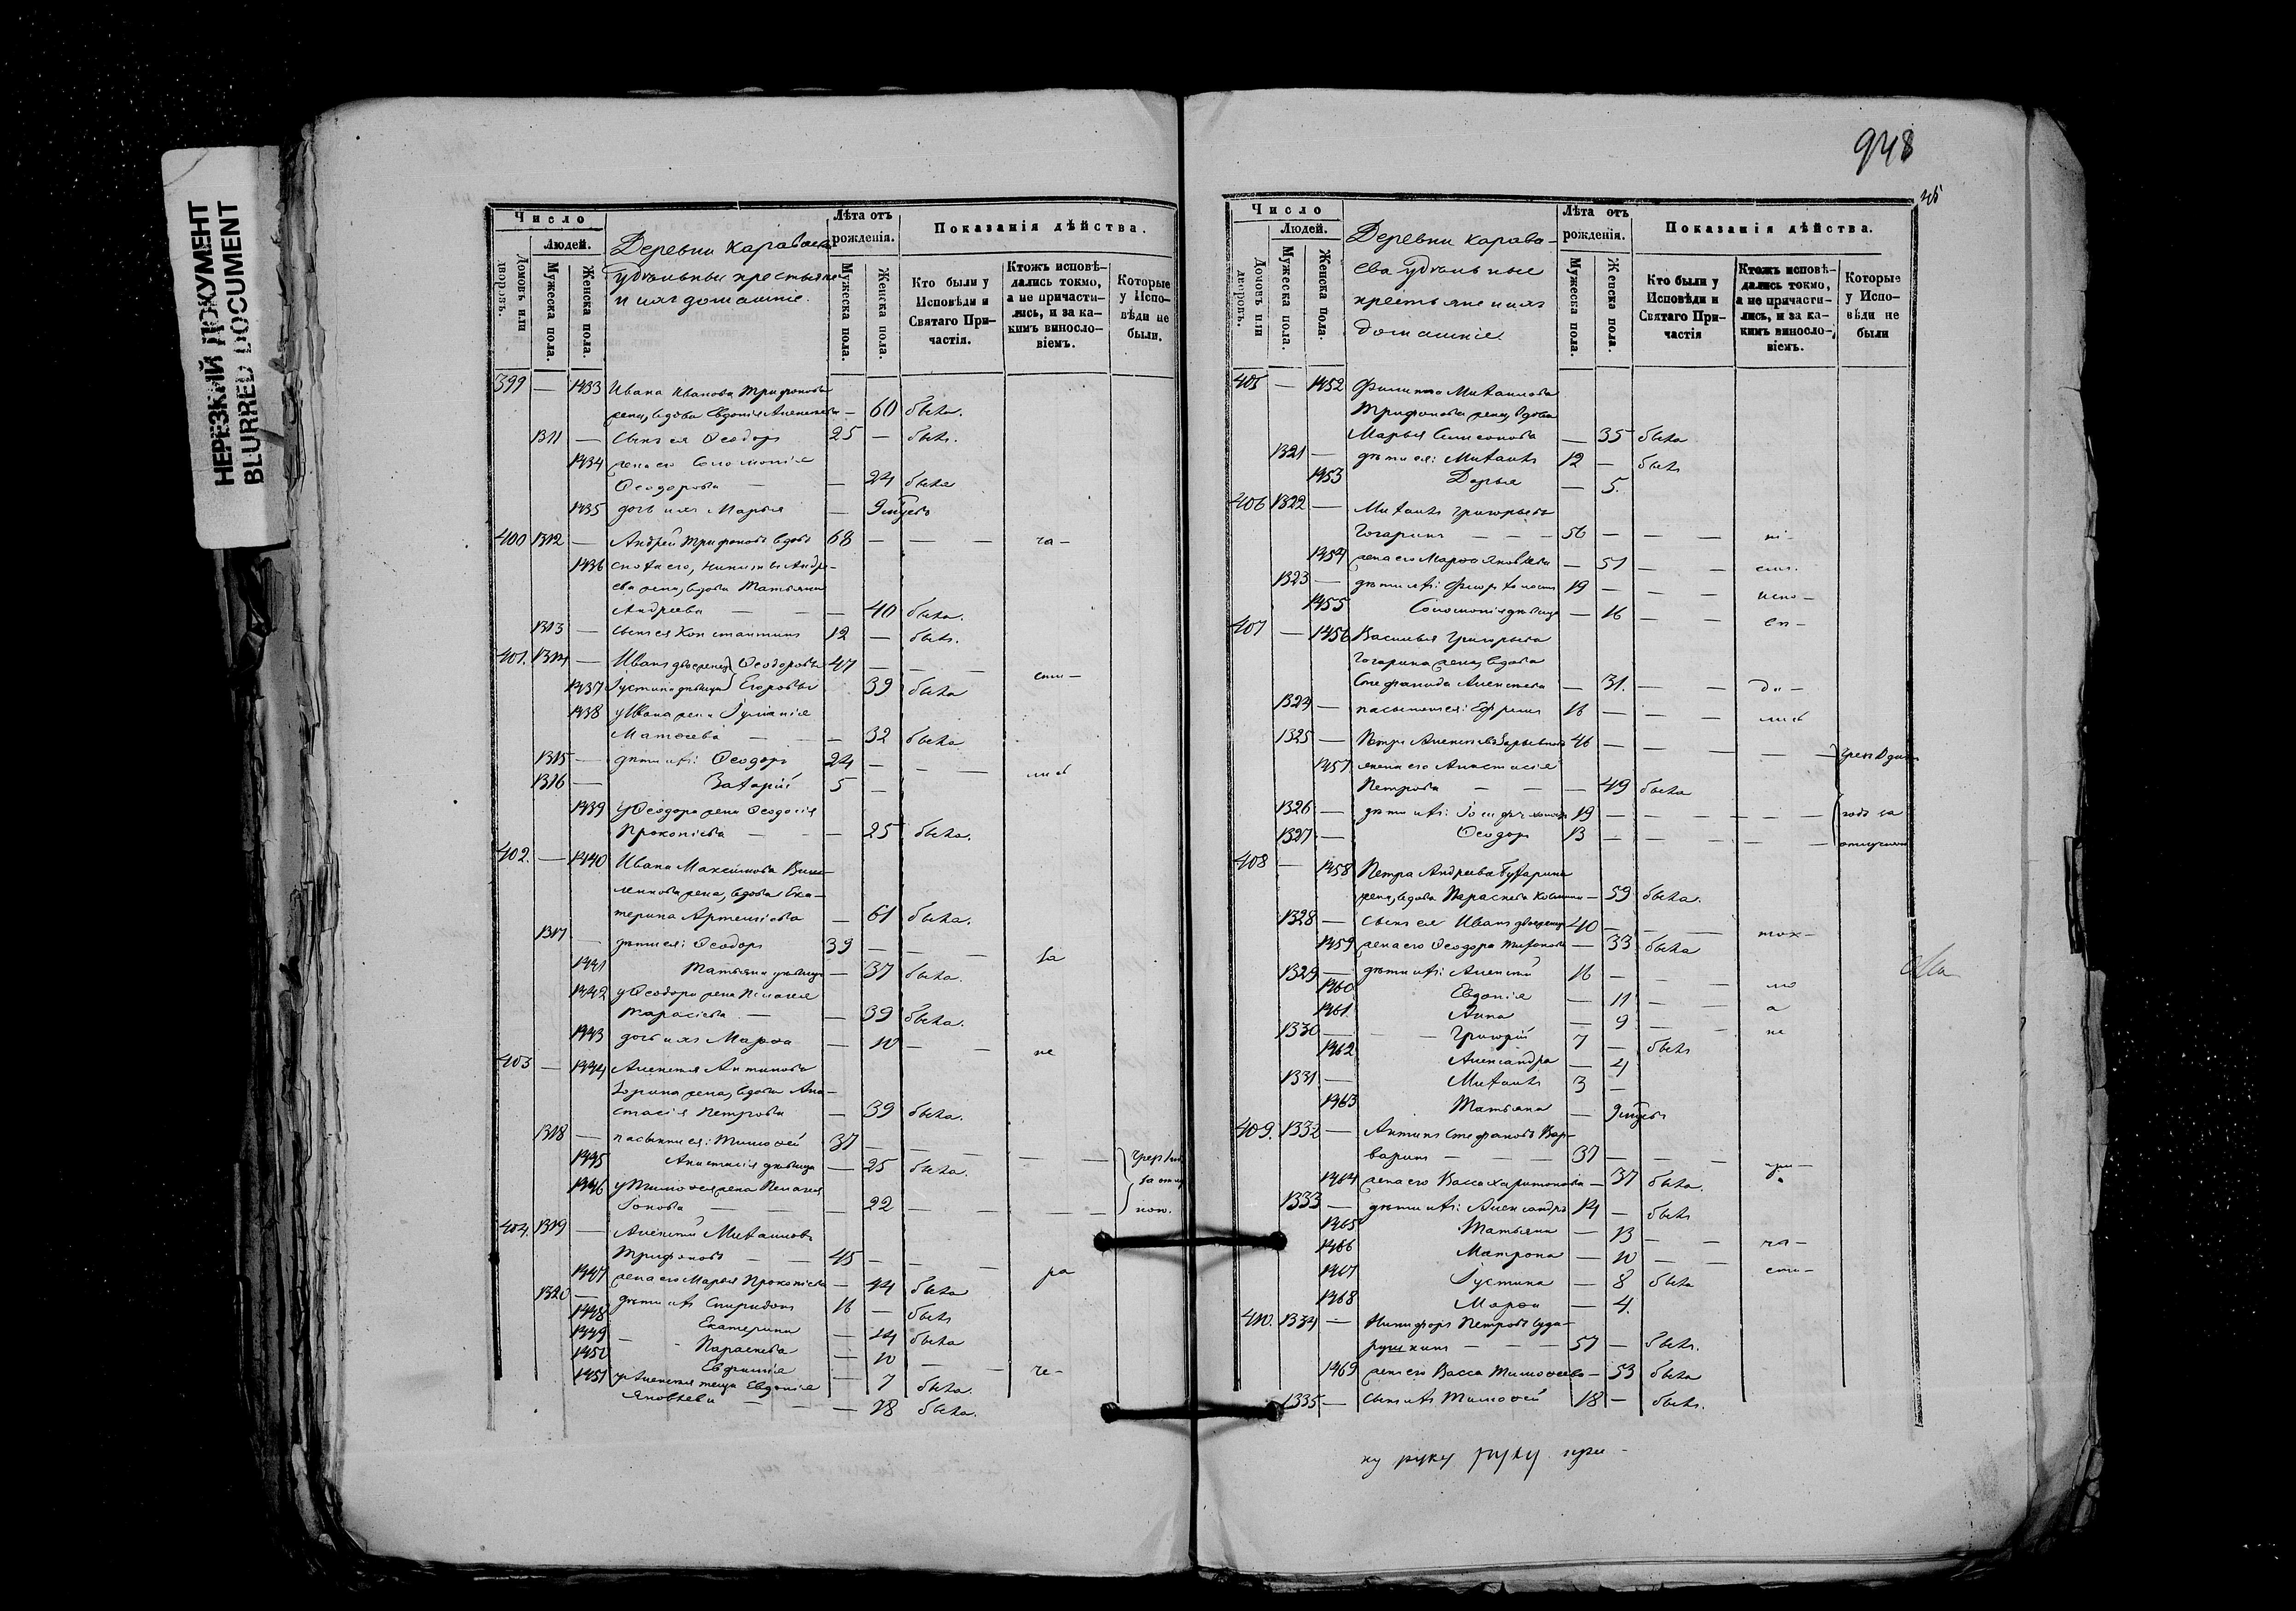 НЕРЕЗКИЙ ДОКУМЕНТ
BLURRED DOCUMENT
Число
Людей.
Домовъ или дворовъ.
Мужеска пола.
Женска пола.
Деревни Караваева
удѣльные крестьяне
и ихъ домашніе.
Лѣта отъ рожденія.
Мужеска пола.
Женска пола.
Показанія дѣйства.
Кто были у Исповѣди и Святаго Причастія.
Ктожъ исповѣдались токмо, а не причастились, и за какимъ винословіемъ.
Которые у Исповѣди не были.
399 — 1433 Ивана Иванова Трифонова
жена, вдова Евдокія Алексеева — 60 была.
1311 — сынъ ея Ѳеодоръ 25 — былъ.
1434 жена его Соломонія
Ѳеодорова — — 24 была
1435 дочь ихъ Марья —
400 1312 — Андрей Трифоновъ вдовъ 68 — — —
1436 сноха его, Никиты Андре-
ева жена, вдова Татьяна
Андреева — — 40 была.
1313 — сынъ ея Константинъ 12 — былъ.
401. 1314 — Иванъ двоеженецъ } Ѳеодоровы 47 — — —
1437 Іустина дѣвица } Егоровы 39 была
1438 у Ивана жена Іуліанія
Матѳеева — — 32 была
1315 — дѣти ихъ: Ѳеодоръ 24 — — —
1316 — Захарій 5 —
1439 у Ѳеодора жена Ѳеодосія
Прокопіева — — 25 была.
402. — 1440 Ивана Максимова
жена, вдова Ека-
терина Артеміева — 61 была.
1317 — дѣти ея: Ѳеодоръ 39 — — —
1441 Татьяна дѣвица — 37 была.
1442 у Ѳеодора жена Пелагея
Тарасіева — — 39 была.
1443 дочь ихъ Марѳа — 10 — — не
403 — 1444 Алексея Антипова
жена, вдова Ана-
стасія Петрова — 39 была.
1318 — пасынки ея: Тимоѳей 37 — — — —
1445 Анастасія дѣвица — 25 была.
1446 у Тимоѳея жена Пелагея
Іонова — — 22 — — —
404. 1319 — Алексѣй Михаиловъ
Трифоновъ — — 45 — — —
1447 жена его Марья Прокопіева — 44 была
1320 — дѣти ихъ Спиридонъ 16 — былъ
1448 Екатерина — 14 была
1449 Параскева — 10 — —
1450 Евфимія — 7 была. че-
1451 у Алексея теща Евдокія
Яковлева — — 78 была.
948
Число
Людей.
Домовъ или дворовъ.
Мужеска пола.
Женска пола.
Деревни Карава-
ева удѣльные
крестьяне и ихъ
домашніе.
Лѣта отъ рожденія.
Мужеска пола.
Женска пола.
Показанія дѣйства.
Кто были у Исповѣди и Святаго Причастія
Ктожъ исповѣдались токмо, а не причастились, и за какимъ винословіемъ.
Которые у Исповѣди не были
405 — 1452 Филиппа Михаилова
Трифонова жена, вдова
Марья Симеонова — 35 была
1321 — дѣти ея: Михаилъ 12 — былъ
1453 Дарья — 5.
406 1322 — Михаилъ Григорьевъ
Гогаринъ — — 56 — — —
1454 жена его Марѳа Яковлева — 51 — —
1323 — 19 — — испо-
1455 Соломонія дѣвица — 16 — —
407 — 1456 Василья Григорьева
Гогарина жена, вдова
Стефанида Алексеева — 31. — — да-
1324 — пасынокъ ея: Ефремъ 16 — — лись
1325 — Петръ Алексеевъ 46 — — — —
1457 жена его Анастасія
Петрова — — 49 была
1326 — дѣти ихъ: 19 — — — — —
1327 — Ѳеодоръ 13 — — — —
408 — 1458 Петра Андреева Бухарина
жена, вдова Параскева — 59 была.
1328 — сынъ ея Иванъ двоеженецъ 40 — — — ток-
1459 жена его Ѳеодора — 33 была
1329 — дѣти ихъ: Алексѣй 16 — — — мо
1460 Евдокія — 11 — — а
1461. Анна — 9 — — не
1330 — Григорій 7 — былъ
1462 Александра — 4
1331 — Михаилъ 3 —
1463 Татьяна —
409. 1332 — Антипъ Стефановъ Вар-
варинъ — — 37 — — — при-
1464 жена его Васса Харитонова — 37 была.
1333 — дѣти ихъ: Александръ 14 — былъ
1465 Татьяна — 13 — — ча-
1466 Матрона — 10 — — сти-
1467 Іустина — 8 была
1468 Марѳа — 4.
410. 1334 — Никифоръ Петровъ Суда-
рушкинъ — — — 57 — былъ.
1469 жена его Васса Тимоѳеева — 53 была
1335 — сынъ ихъ Тимоѳей 18 — былъ.